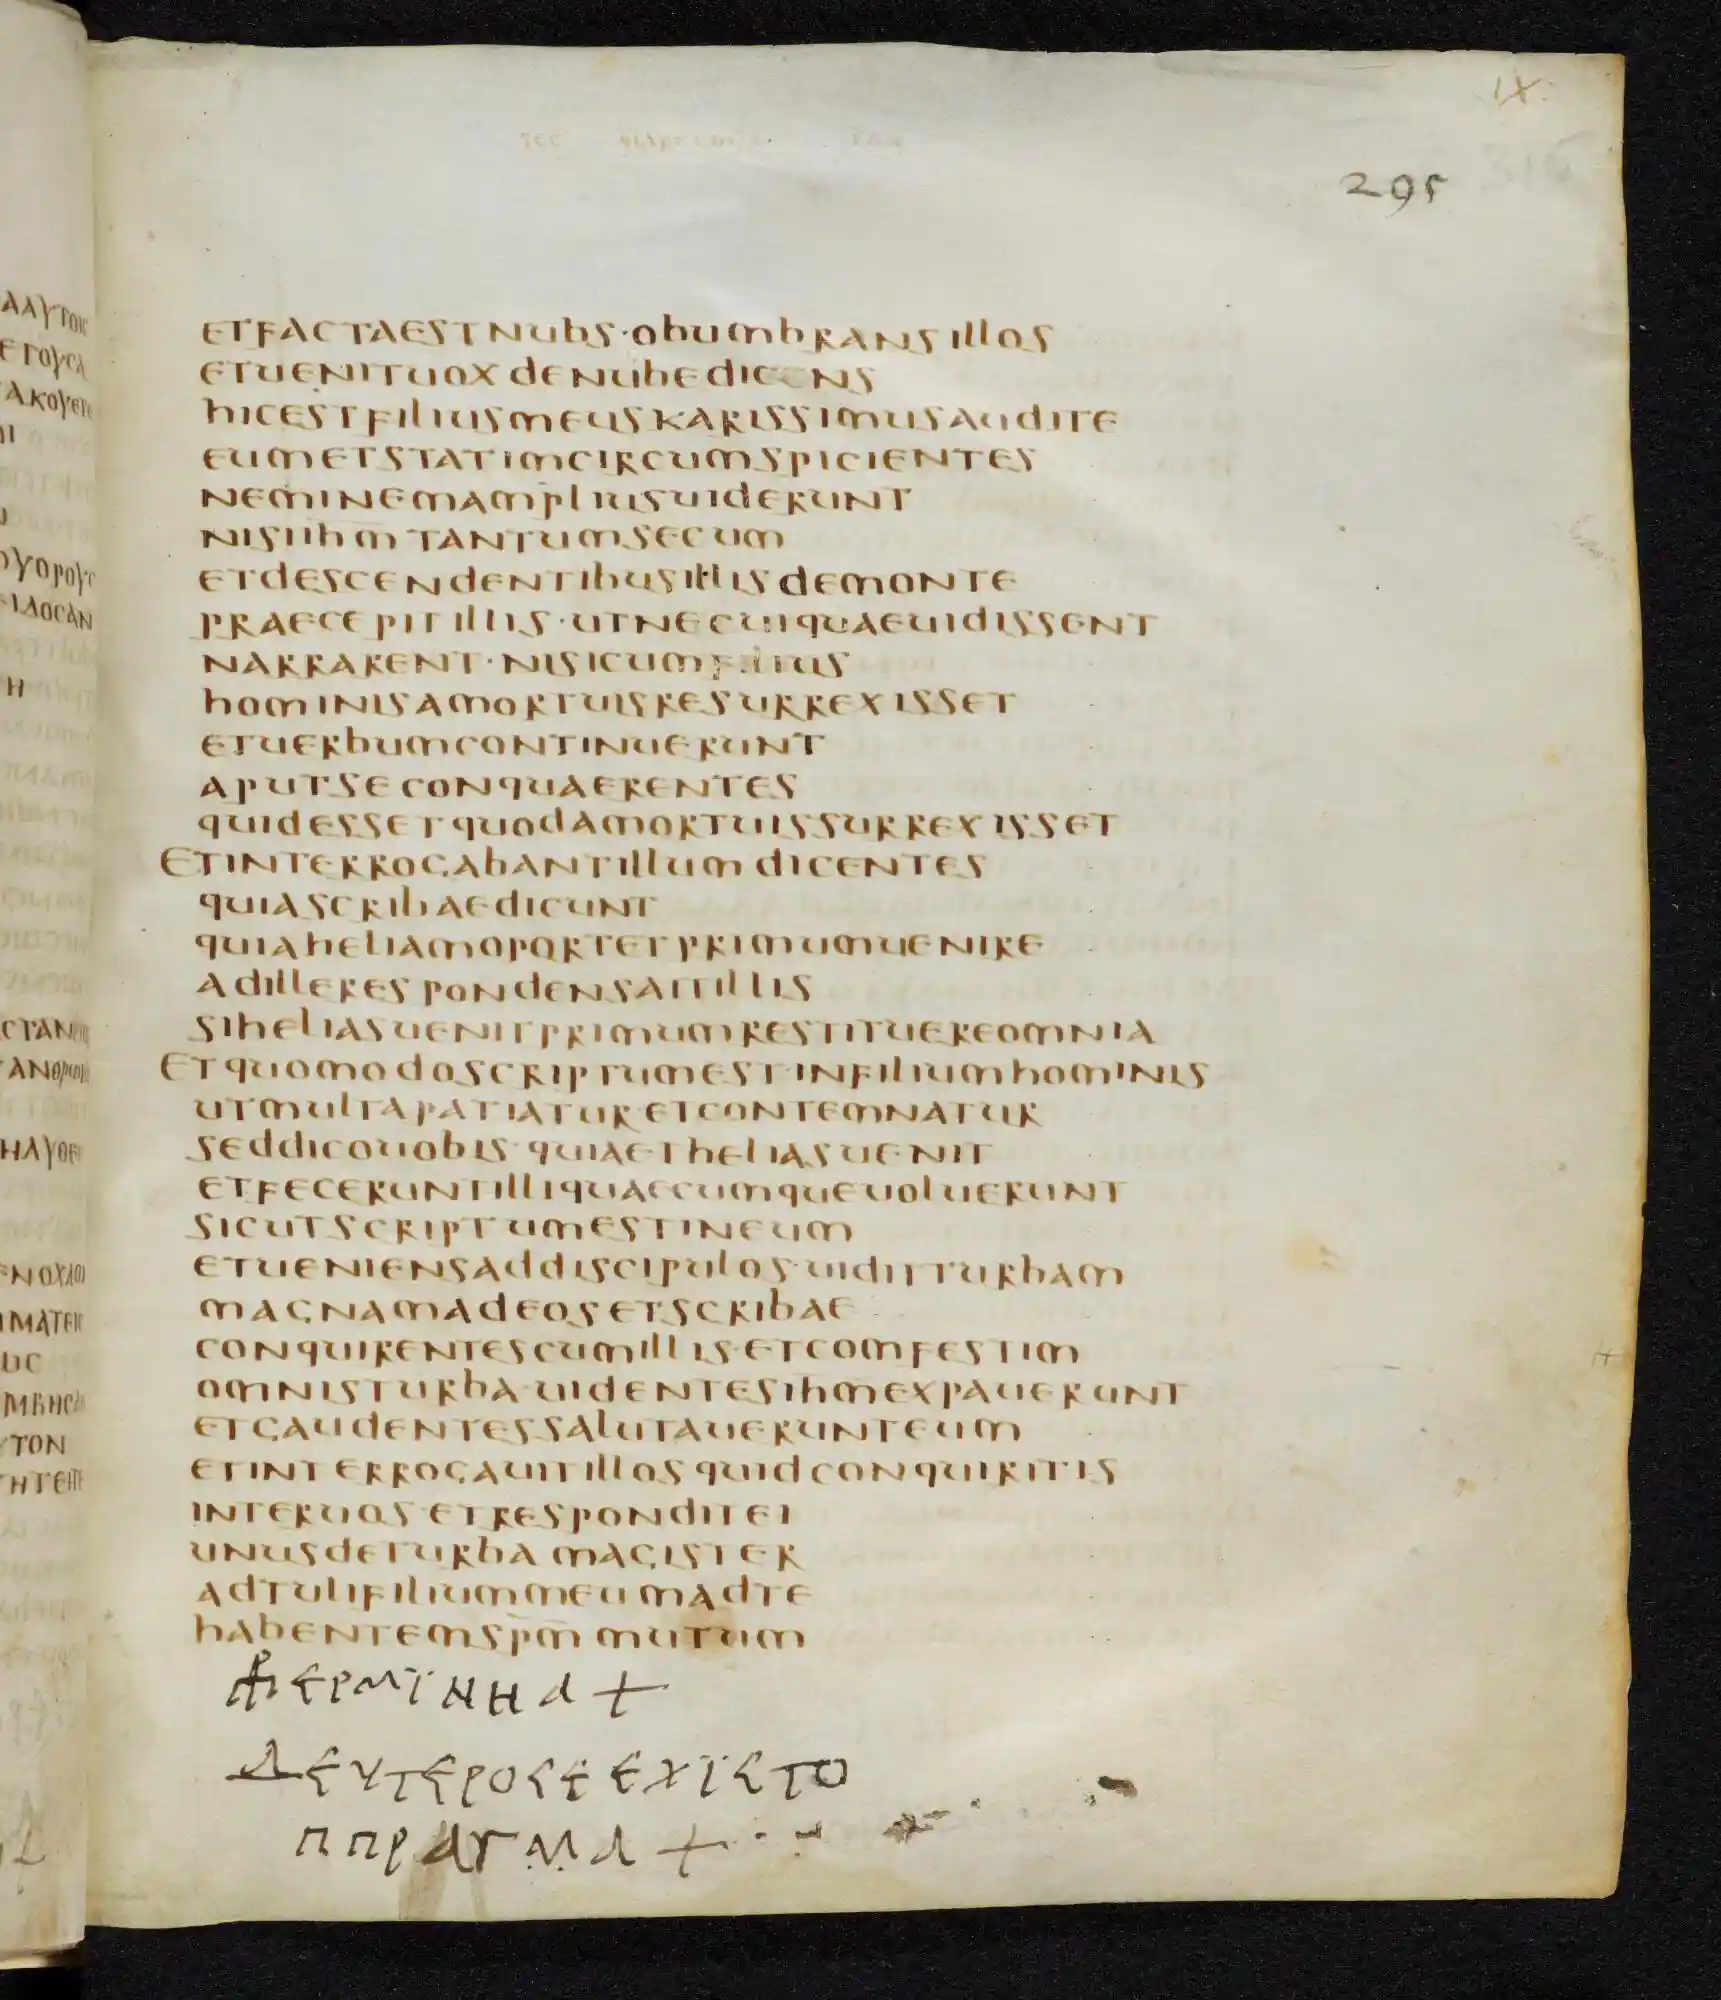 295
ETFACTAESTNUBS·OBUMBRANSILLOS
ETUENITUOXDENUBEDICENS
HICESTFILIUSMEUSKARISSIMUSAUDITE
EUMETSTATIMCIRCUMSPICIENTES
NEMINEMAMPLIUSUIDERUNT
NISIIHM̅TANTUMSECUM
ETDESCENDENTIBUSILLISDEMONTE
PRAECEPITILLIS·UTNECUIQUAEUIDISSENT
NARRARENT·NISICUMFILIUS
HOMINISAMORTUISRESURREXISSET
ETUERBUMCONTINUERUNT
APUTSECONQUAERENTES
QUIDESSETQUODAMORTUISSURREXISSET
ETINTERROGABANTILLUMDICENTES
QUIASCRIBAEDICUNT
QUIAHELIAMOPORTETPRIMUMUENIRE
ADILLERESPONDENSAITILLIS
SIHELIASUENITPRIMUMRESTITUEREOMNIA
ETQUOMODOSCRIPTUMESTINFILIUMHOMINIS
UTMULTAPATIATURETCONTEMNATUR
SEDDICOUOBIS·QUIAETHELIASUENIT
ETFECERUNTILLIQUAECUMQUEUOLUERUNT
SICUTSCRIPTUMESTINEUM
ETUENIENSADDISCIPULOS·UIDITTURBAM
MAGNAMADEOSETSCRIBAE
CONQUIRENTESCUMILLIS·ETCOMFESTIM
OMNISTURBA·UIDENTESIHM̅EXPAUERUNT
ETGAUDENTESSALUTAUERUNTEUM
ETINTERROGAUITILLOSQUIDCONQUIRITIS
INTERUOS·ETRESPONDITEI
UNUSDETURBAMAGISTER
ADTULIFILIUMMEUMADTE
HABENTEMSPM̅MUTUM
ΕΡΜΪΝΗΑ +
ΔΕΥΤΕΡΟСΕΕΧΪСΤΟ
ΠΠΡΑΓΜΑ +